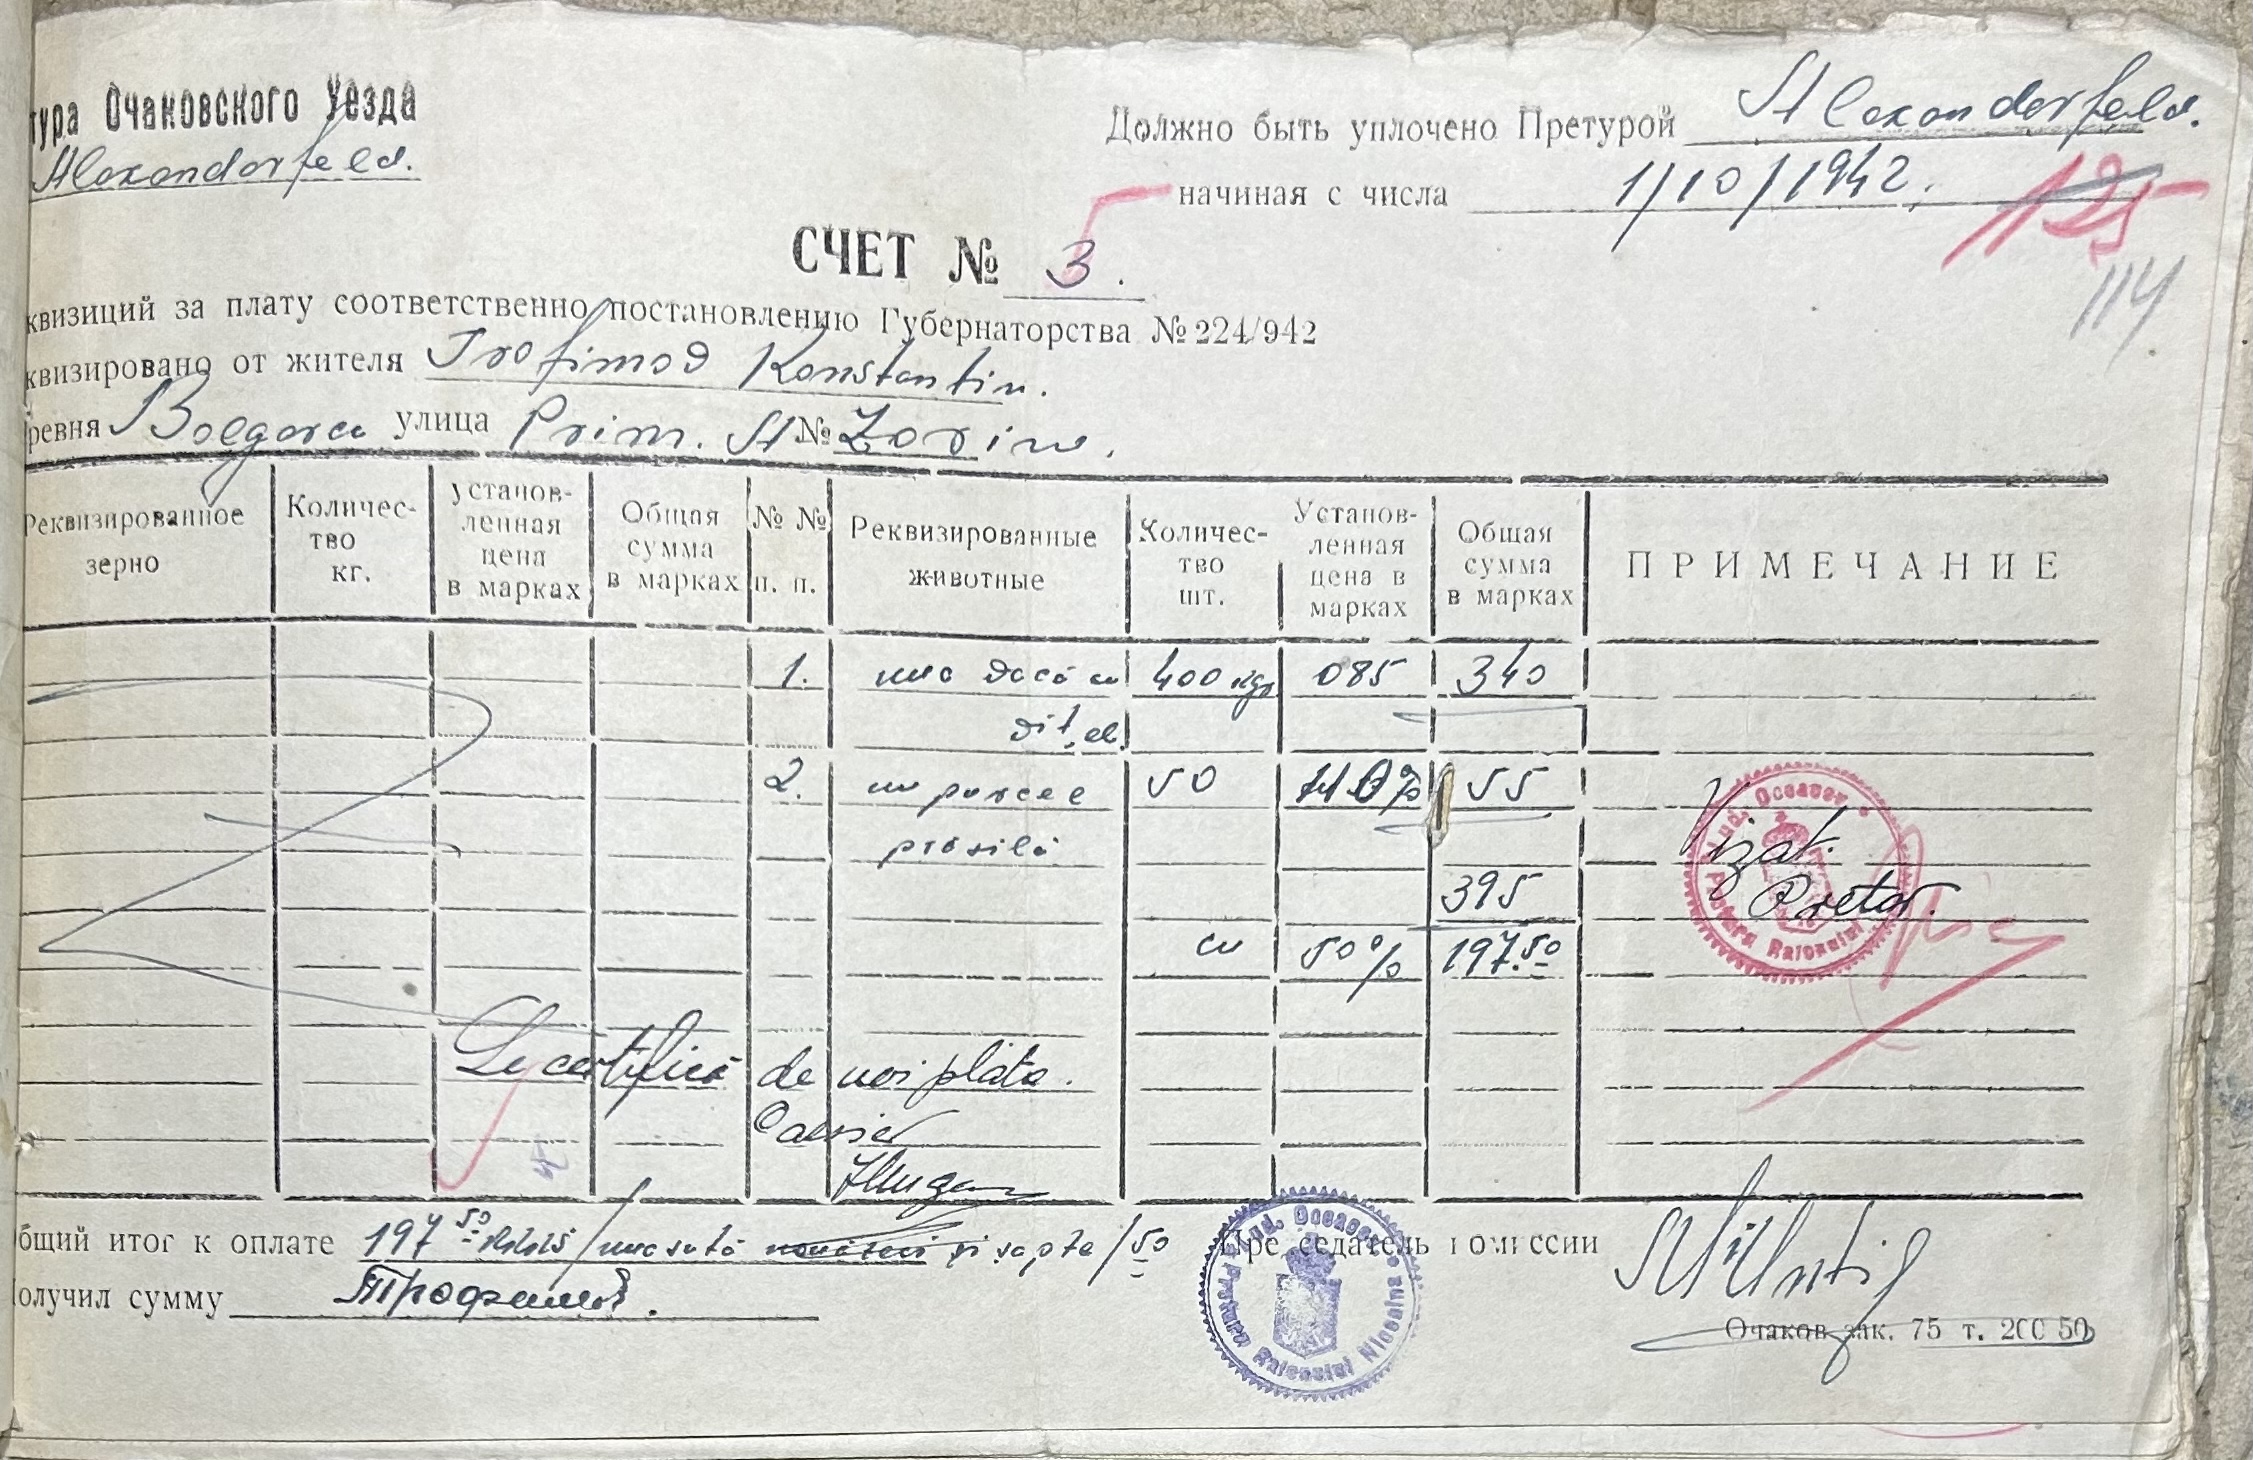 тура Очаковского Уезда
Alexandorfeld.
Должно быть уплочено Претурой Alexandorfeld.
начиная с числа 1/10/1942.
125
114
СЧЕТ № 3.
5
квизиций за плату соответственно постановлению Губернаторства № 224/942
квизировано от жителя Trofimov Konstantin.
ревня Bolgarca улица Prim. A № Zorin.
Реквизированное зерно
Количес-тво кг.
Установ-ленная цена в марках
Общая сумма в марках
№ № п. п.
Реквизированные животные
Количес-тво шт.
Установ-ленная цена в марках
Общая сумма в марках
ПРИМЕЧАНИЕ
1. una vacă cu 400 kgr 085 340
vițel
2. un purcel 50 110% 55
prăsilă
395
cu 50% 197.50
Vizat.
Pretor.
Jud. Oceacov
Pretura Raionului
Se certifică de noi plata.
Casier
бщий итог к оплате 197 50 RKKS / una sută și șapte / 50
Председатель комиссии
олучил сумму Трофимов.
Jud. Oceacov
Pretura Raionului
Очаков зак. 75 т. 200 50